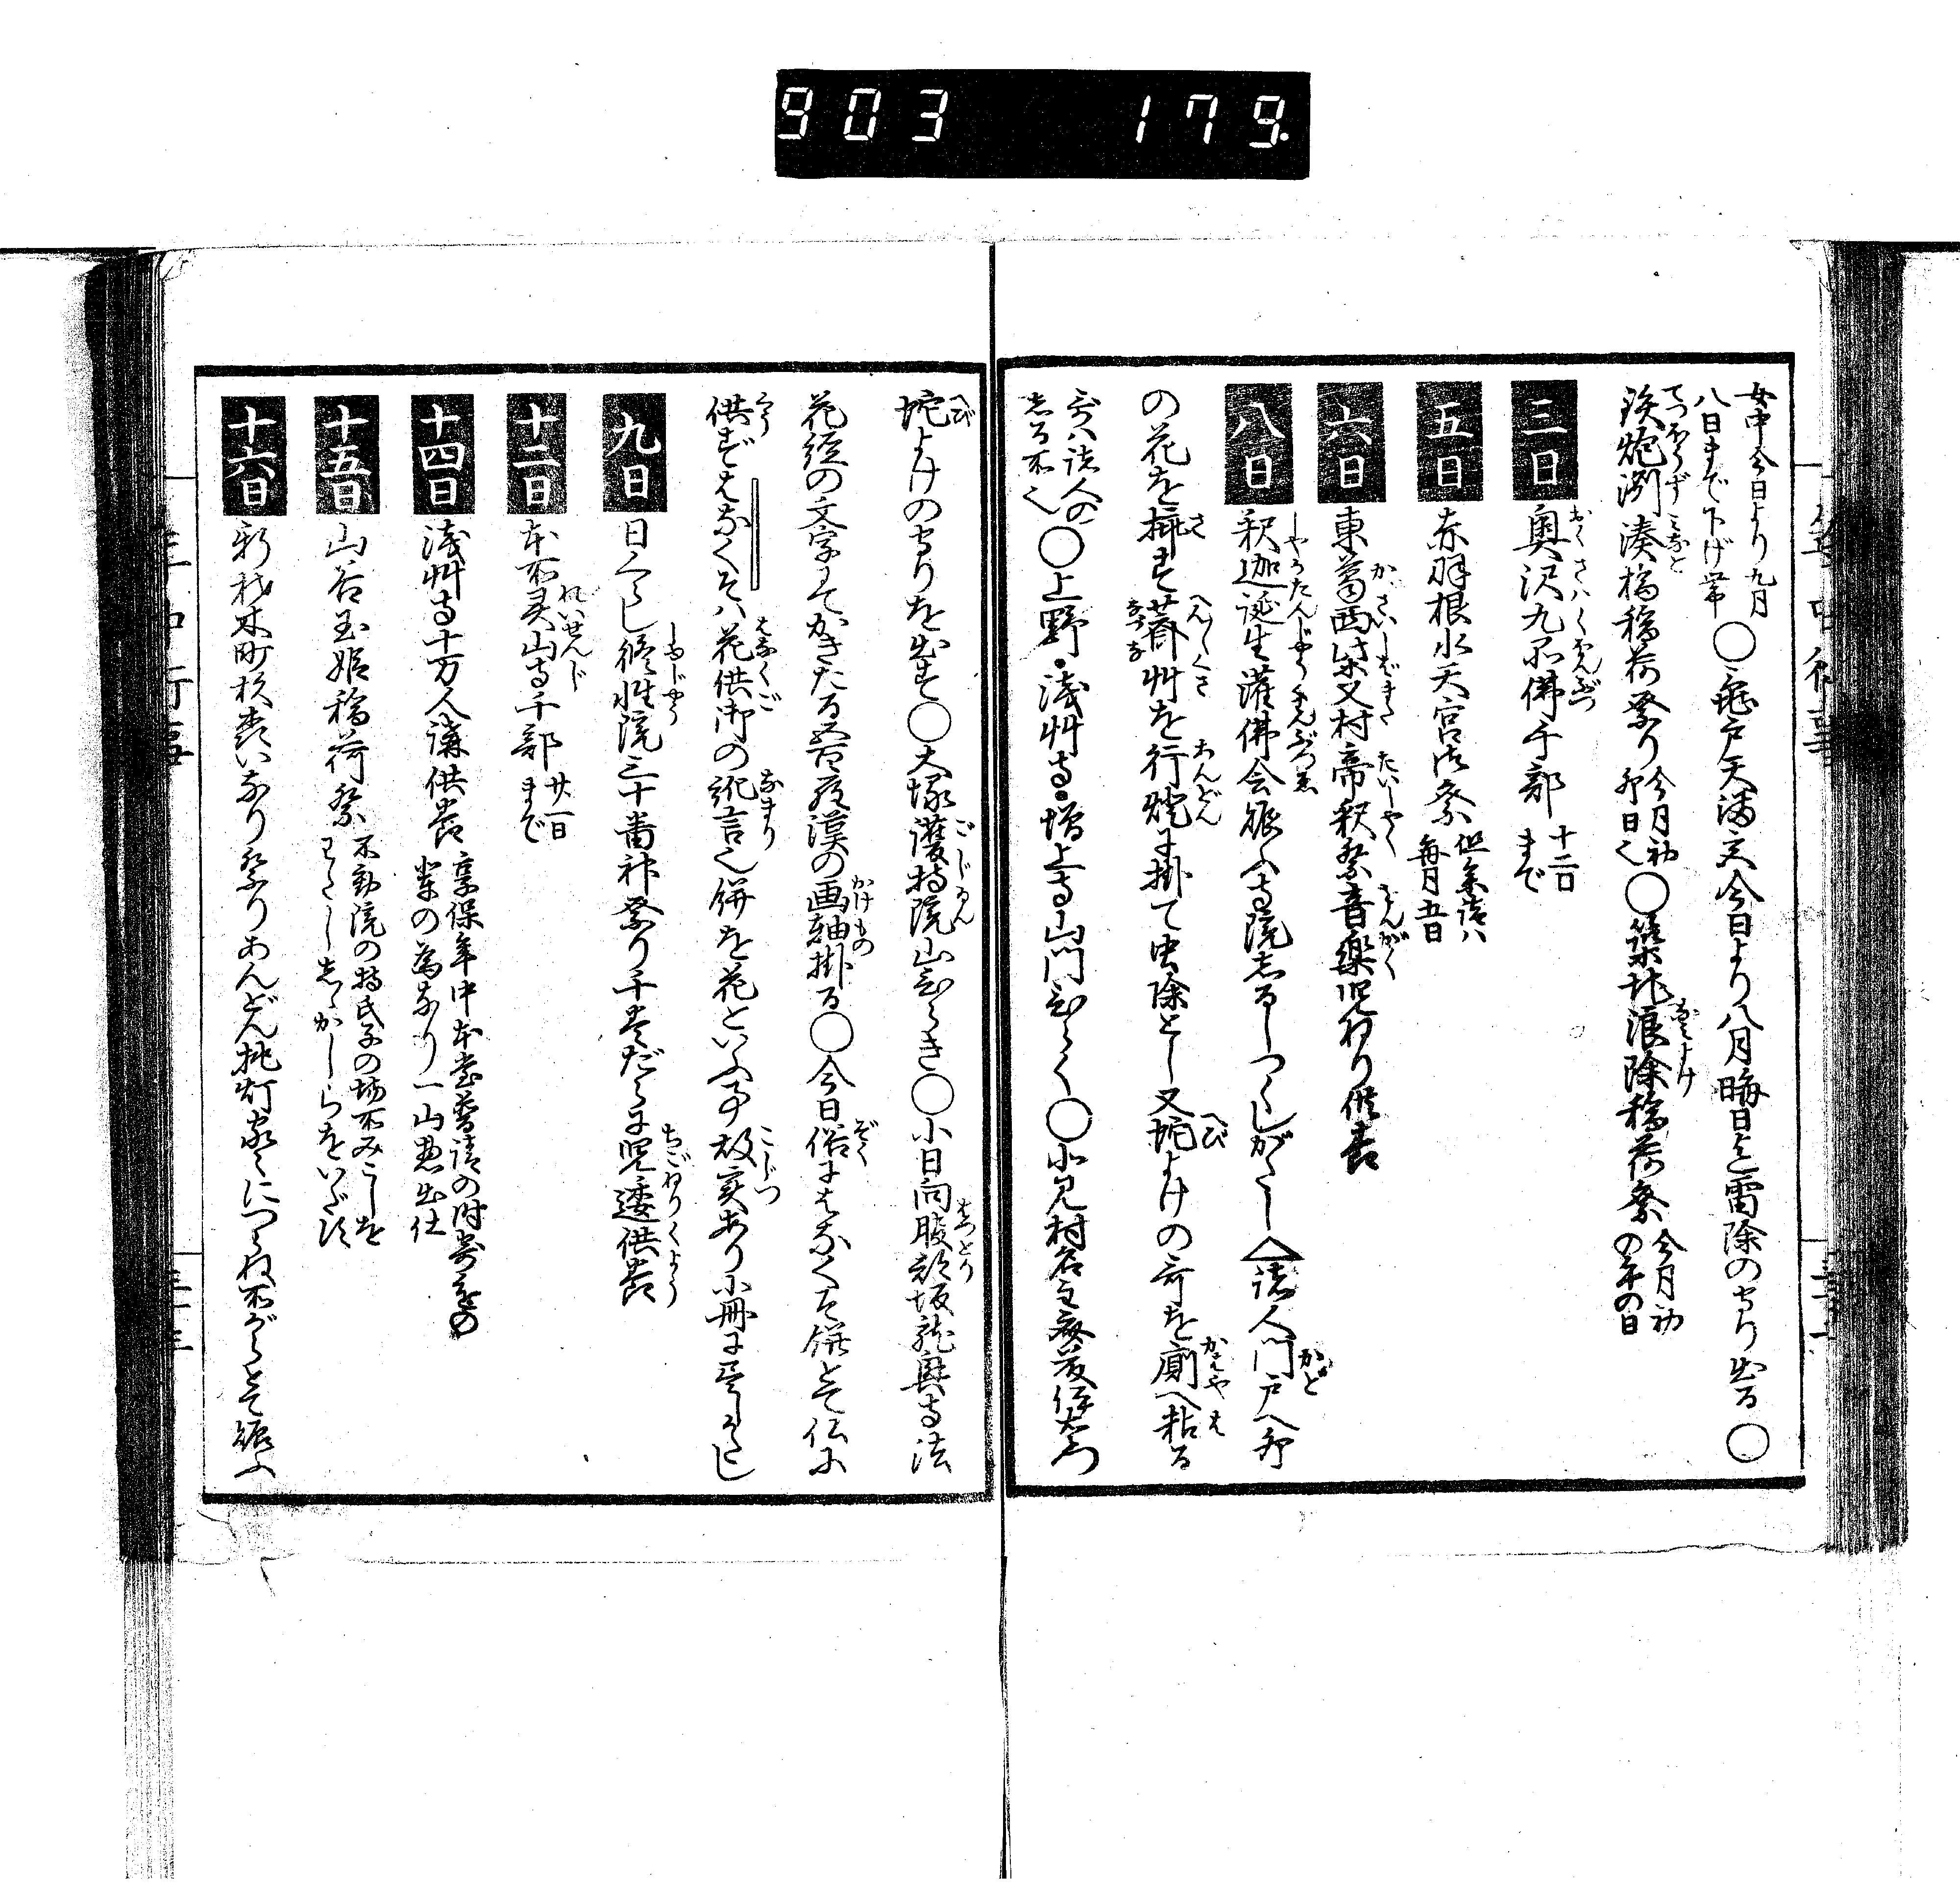 903 179.
女中今日より九月
八日まで下げ帯
○亀戸天満宮今日より八月晦日迄雷除の守り出る○
鉄炮洲湊稲荷祭り
今月初
午日也
○築地浪除稲荷祭
今月初
の午の日
三日
奥沢九品佛千部
十二日
まで
五日
赤羽根水天宮御祭
但参詣ハ
毎月五日
六日
東葛西柴又村帝釈祭音楽児ねり供養
八日
釈迦誕生灌佛会賑ふ寺院しるしつくしがたし
諸人門戸へ卯
の花を挿す薺草を行燈に掛て虫除とし又蛇よけの哥を厠へ粘る
哥ハ諸人の
しる所也
○上野・浅艸寺・増上寺山門ひらく○
蛇よけの守りを出す○大塚護持院山びらき○小日向服部坂龍興寺法
花経の文字にてかきたる
の画軸掛る○今日俗にはなくそ餅とて仏に
供ずはなくそハ花供御の訛言也餅を花といふ事故実あり小冊に尽しがたし
九日
日ぐらし修性院三十番神祭り千巻だらに児逶供養
十二日
本所灵山寺千部
廿一日
まで
十四日
浅艸寺十万人講供養
享保年中本堂普請の時寄進の
輩の為なり一山惣出仕
十五日
山谷玉姫稲荷祭
不動院の持氏子の場所みこしを
わたしししがしらをいだす
十六日
新材木町杉森いなり祭りあんどん挑灯家々につらね所がらとて賑ふ